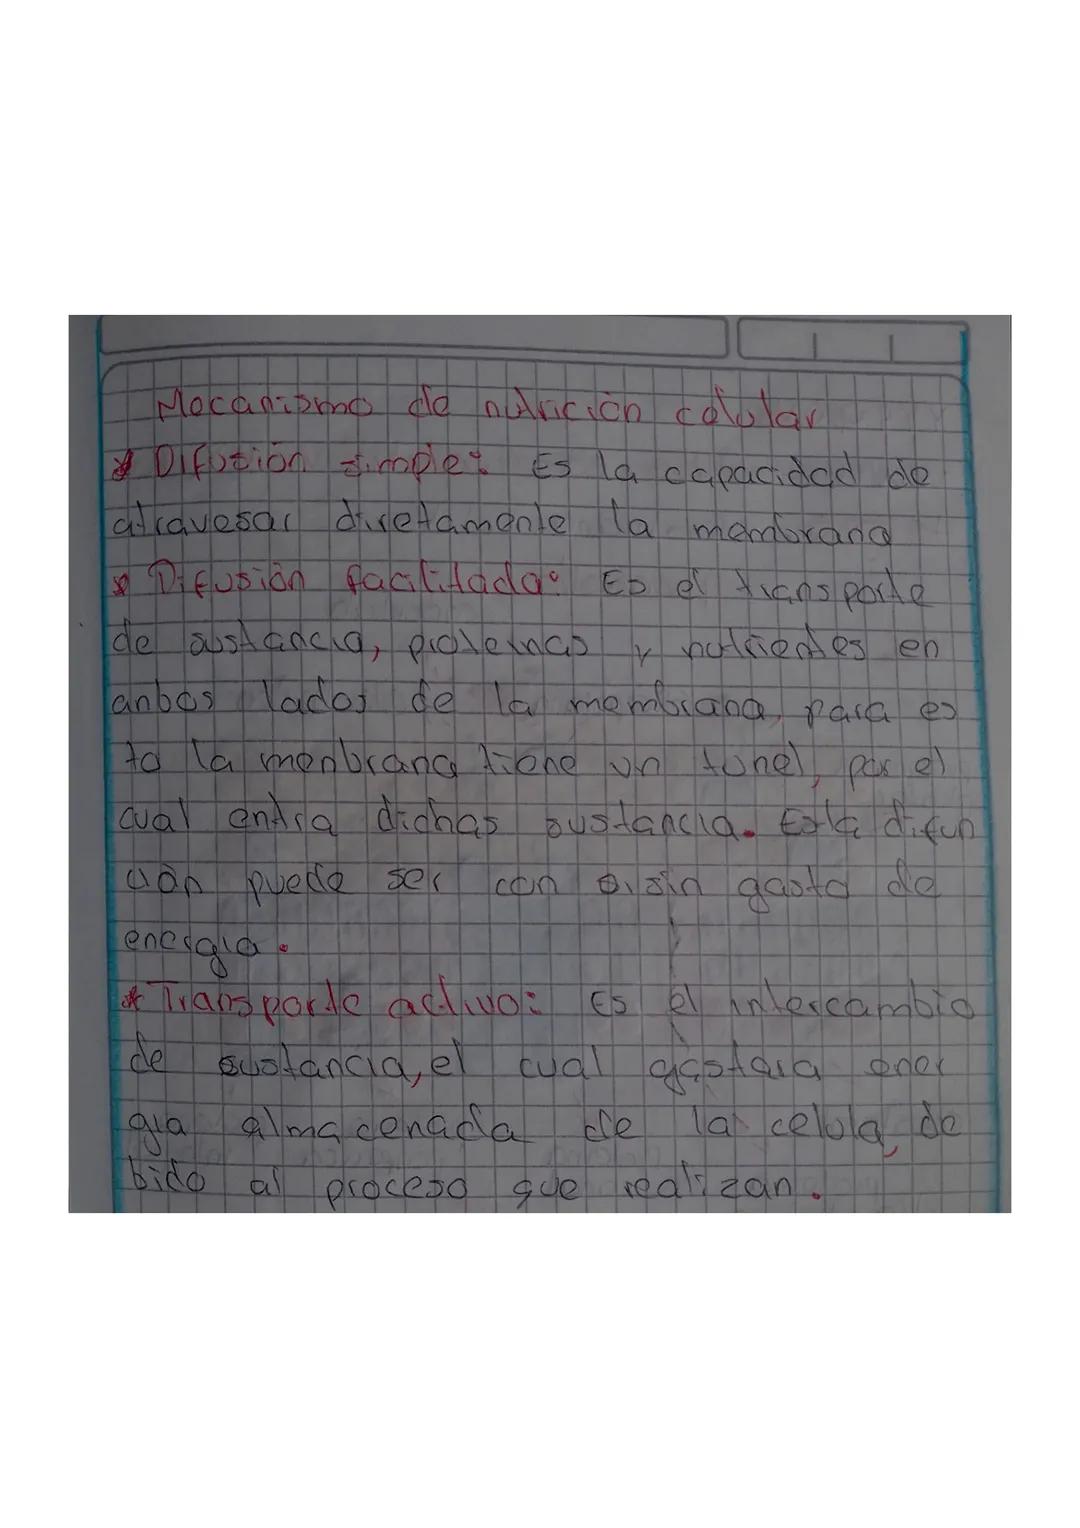 Mecanismo de nutrición celular
* Difusión simple: Es la capacidad de
atravesar diretamente la membrana
* Difusión facilitada: Es el transporte
de sustancia, proteinas y nutrientes en
anbos lados de la membrana, para es
to la menbrana tiene un tunel, por el
cual entra dichas sustancia. Esta difun
ción puede ser con o sin gasto de
energia.
* Transporte activo: Es el intercambio
de sustancia, el cual gastara ener
gia almacenada de la celula, de
bido al proceso que realizan.